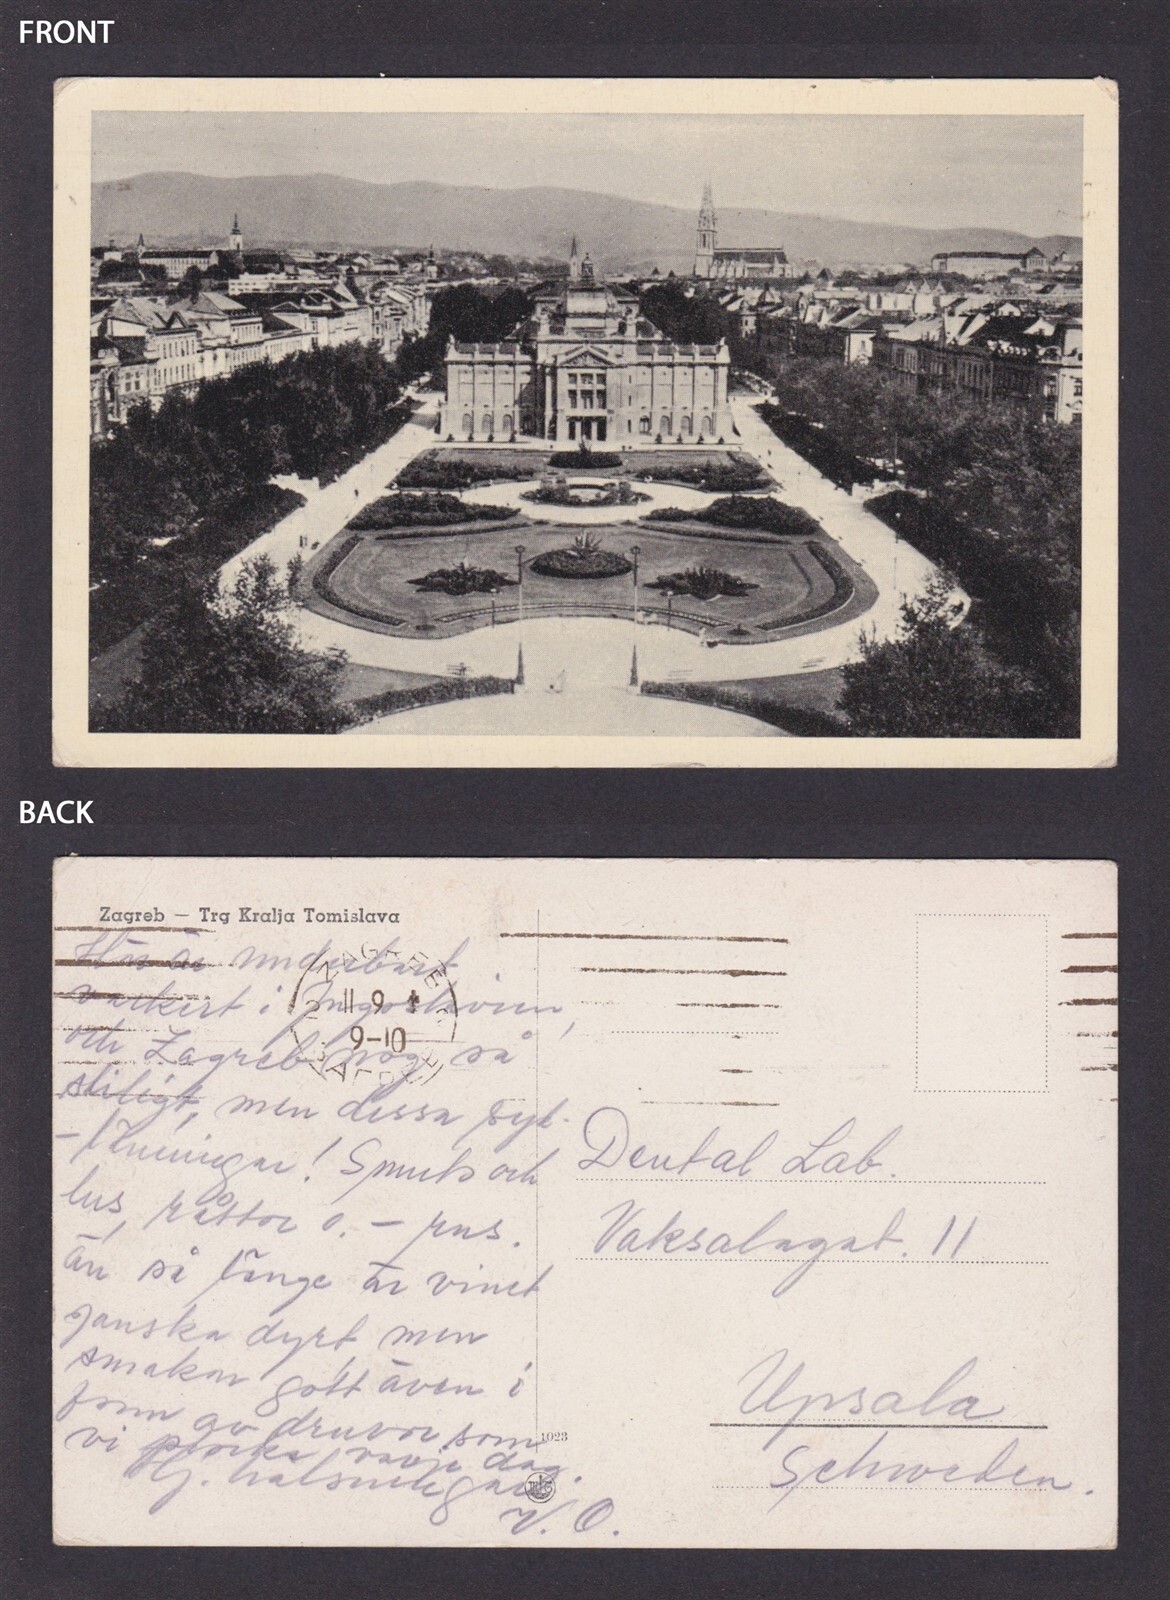 FRONT
BACK
Zagreb — Trg Kralja Tomislava
Här är underbart
vackert i Jugoslavien,
och Zagreb nog så
stiligt, men dessa
! Smuts och
lus, råttor o. – pus.
än så länge är vinet
ganska dyrt, men
smakar gott även i
form av druvor som
vi plocka varje dag.
Hj. hälsningar
V. O.
II 9
9-10
1023
Dental Lab.
Vaksalagat. 11
Upsala
Schweden.